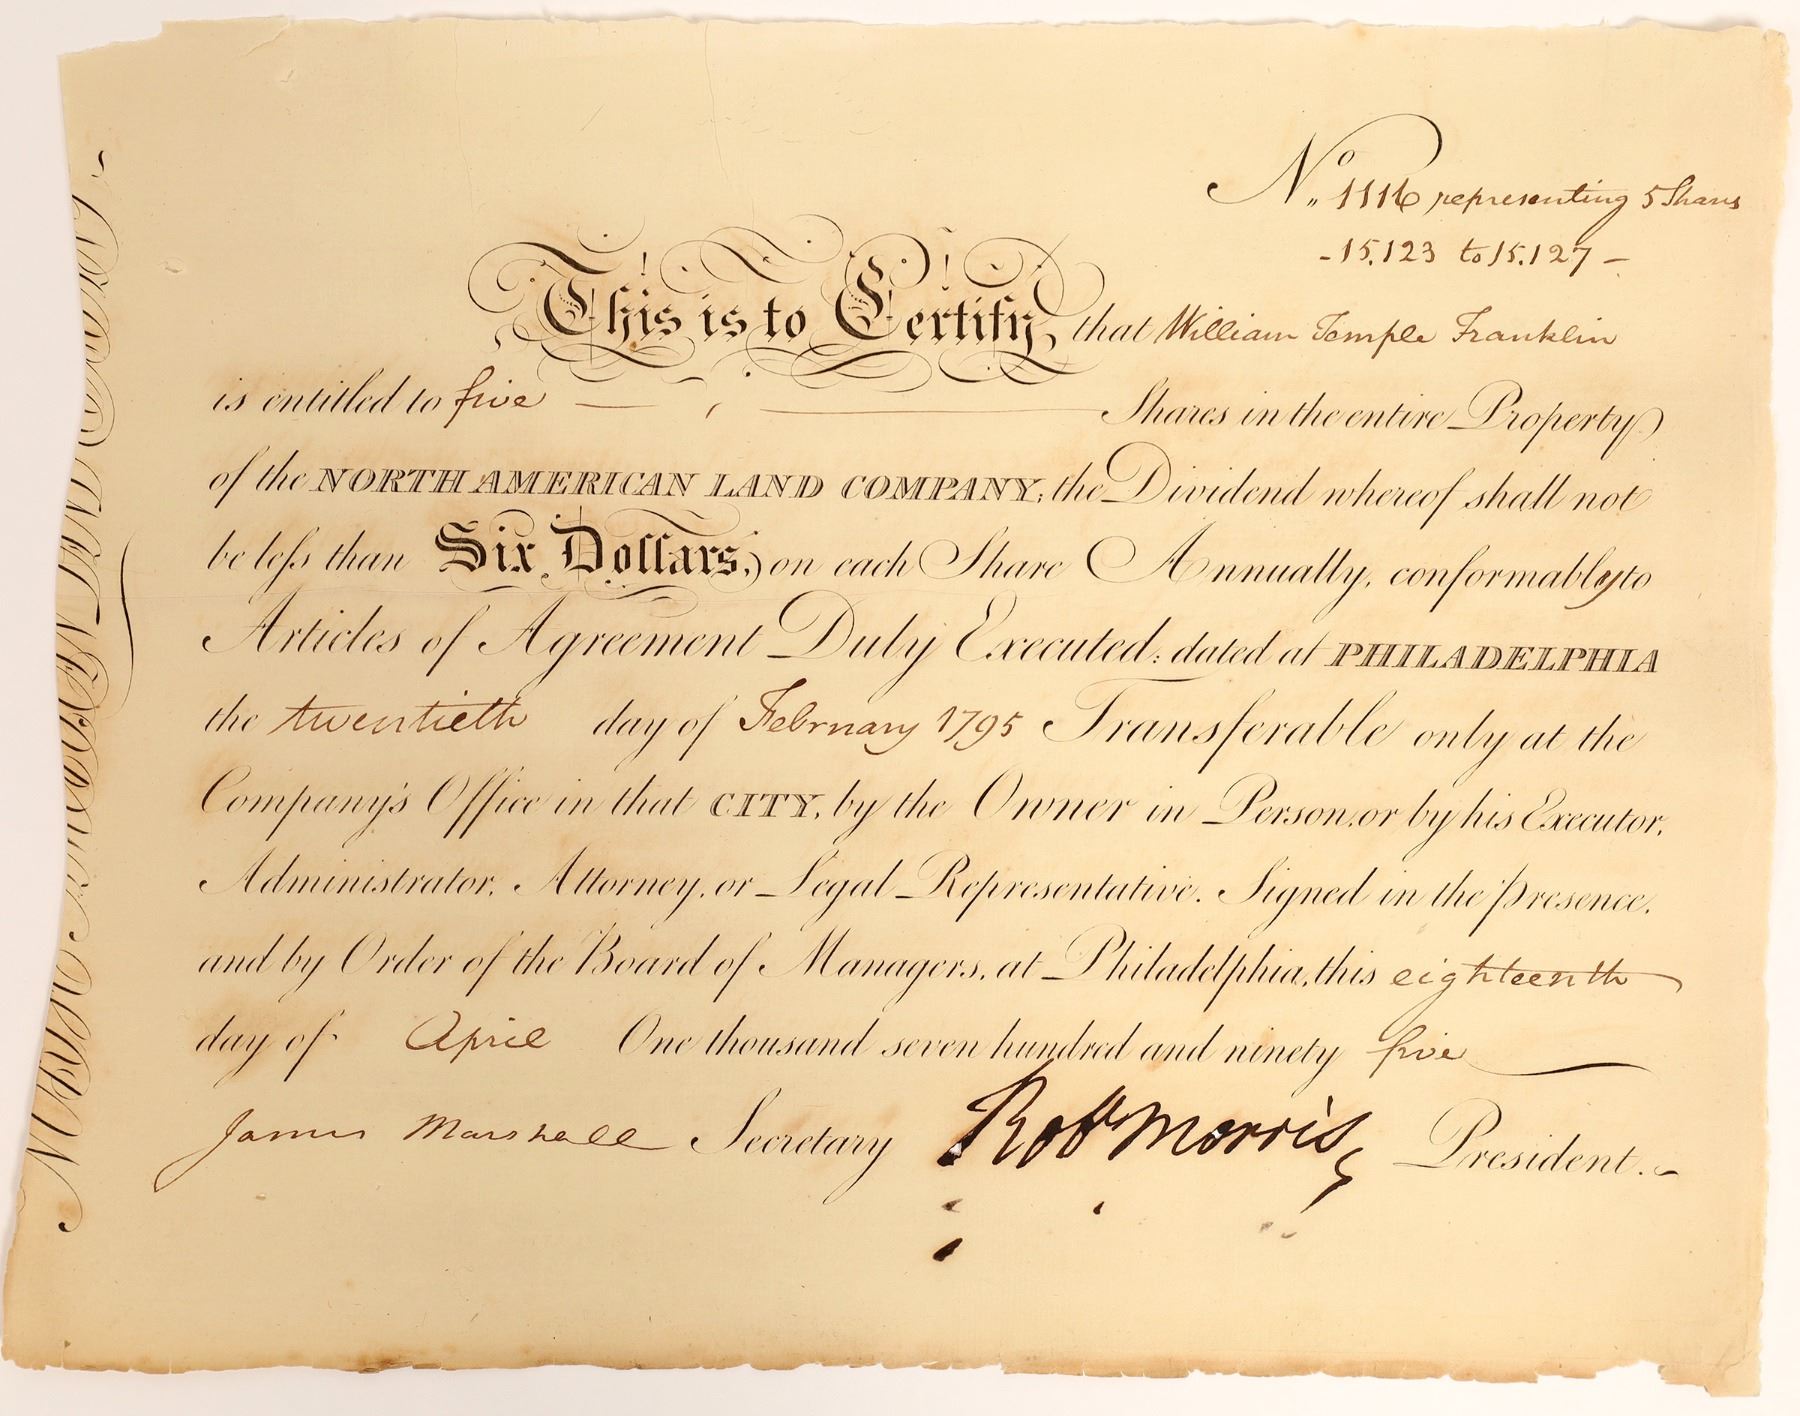 No. 1116 representing 5 Shares
- 15.123 to 15.127 -
This is to Certify, that William Temple Franklin
is entitled to five Shares in the entire Property
of the NORTH AMERICAN LAND COMPANY; the Dividend whereof shall not
be less than Six Dollars, on each Share Annually, conformably to
Articles of Agreement Duly Executed; dated at PHILADELPHIA
the twentieth day of February 1795 Transferable only at the
Company's Office in that CITY, by the Owner in Person, or by his Executor,
Administrator, Attorney, or Legal Representative. Signed in the presence,
and by Order of the Board of Managers, at Philadelphia, this eighteenth
day of April One thousand seven hundred and ninety five
James Marshall Secretary Robt Morris President.